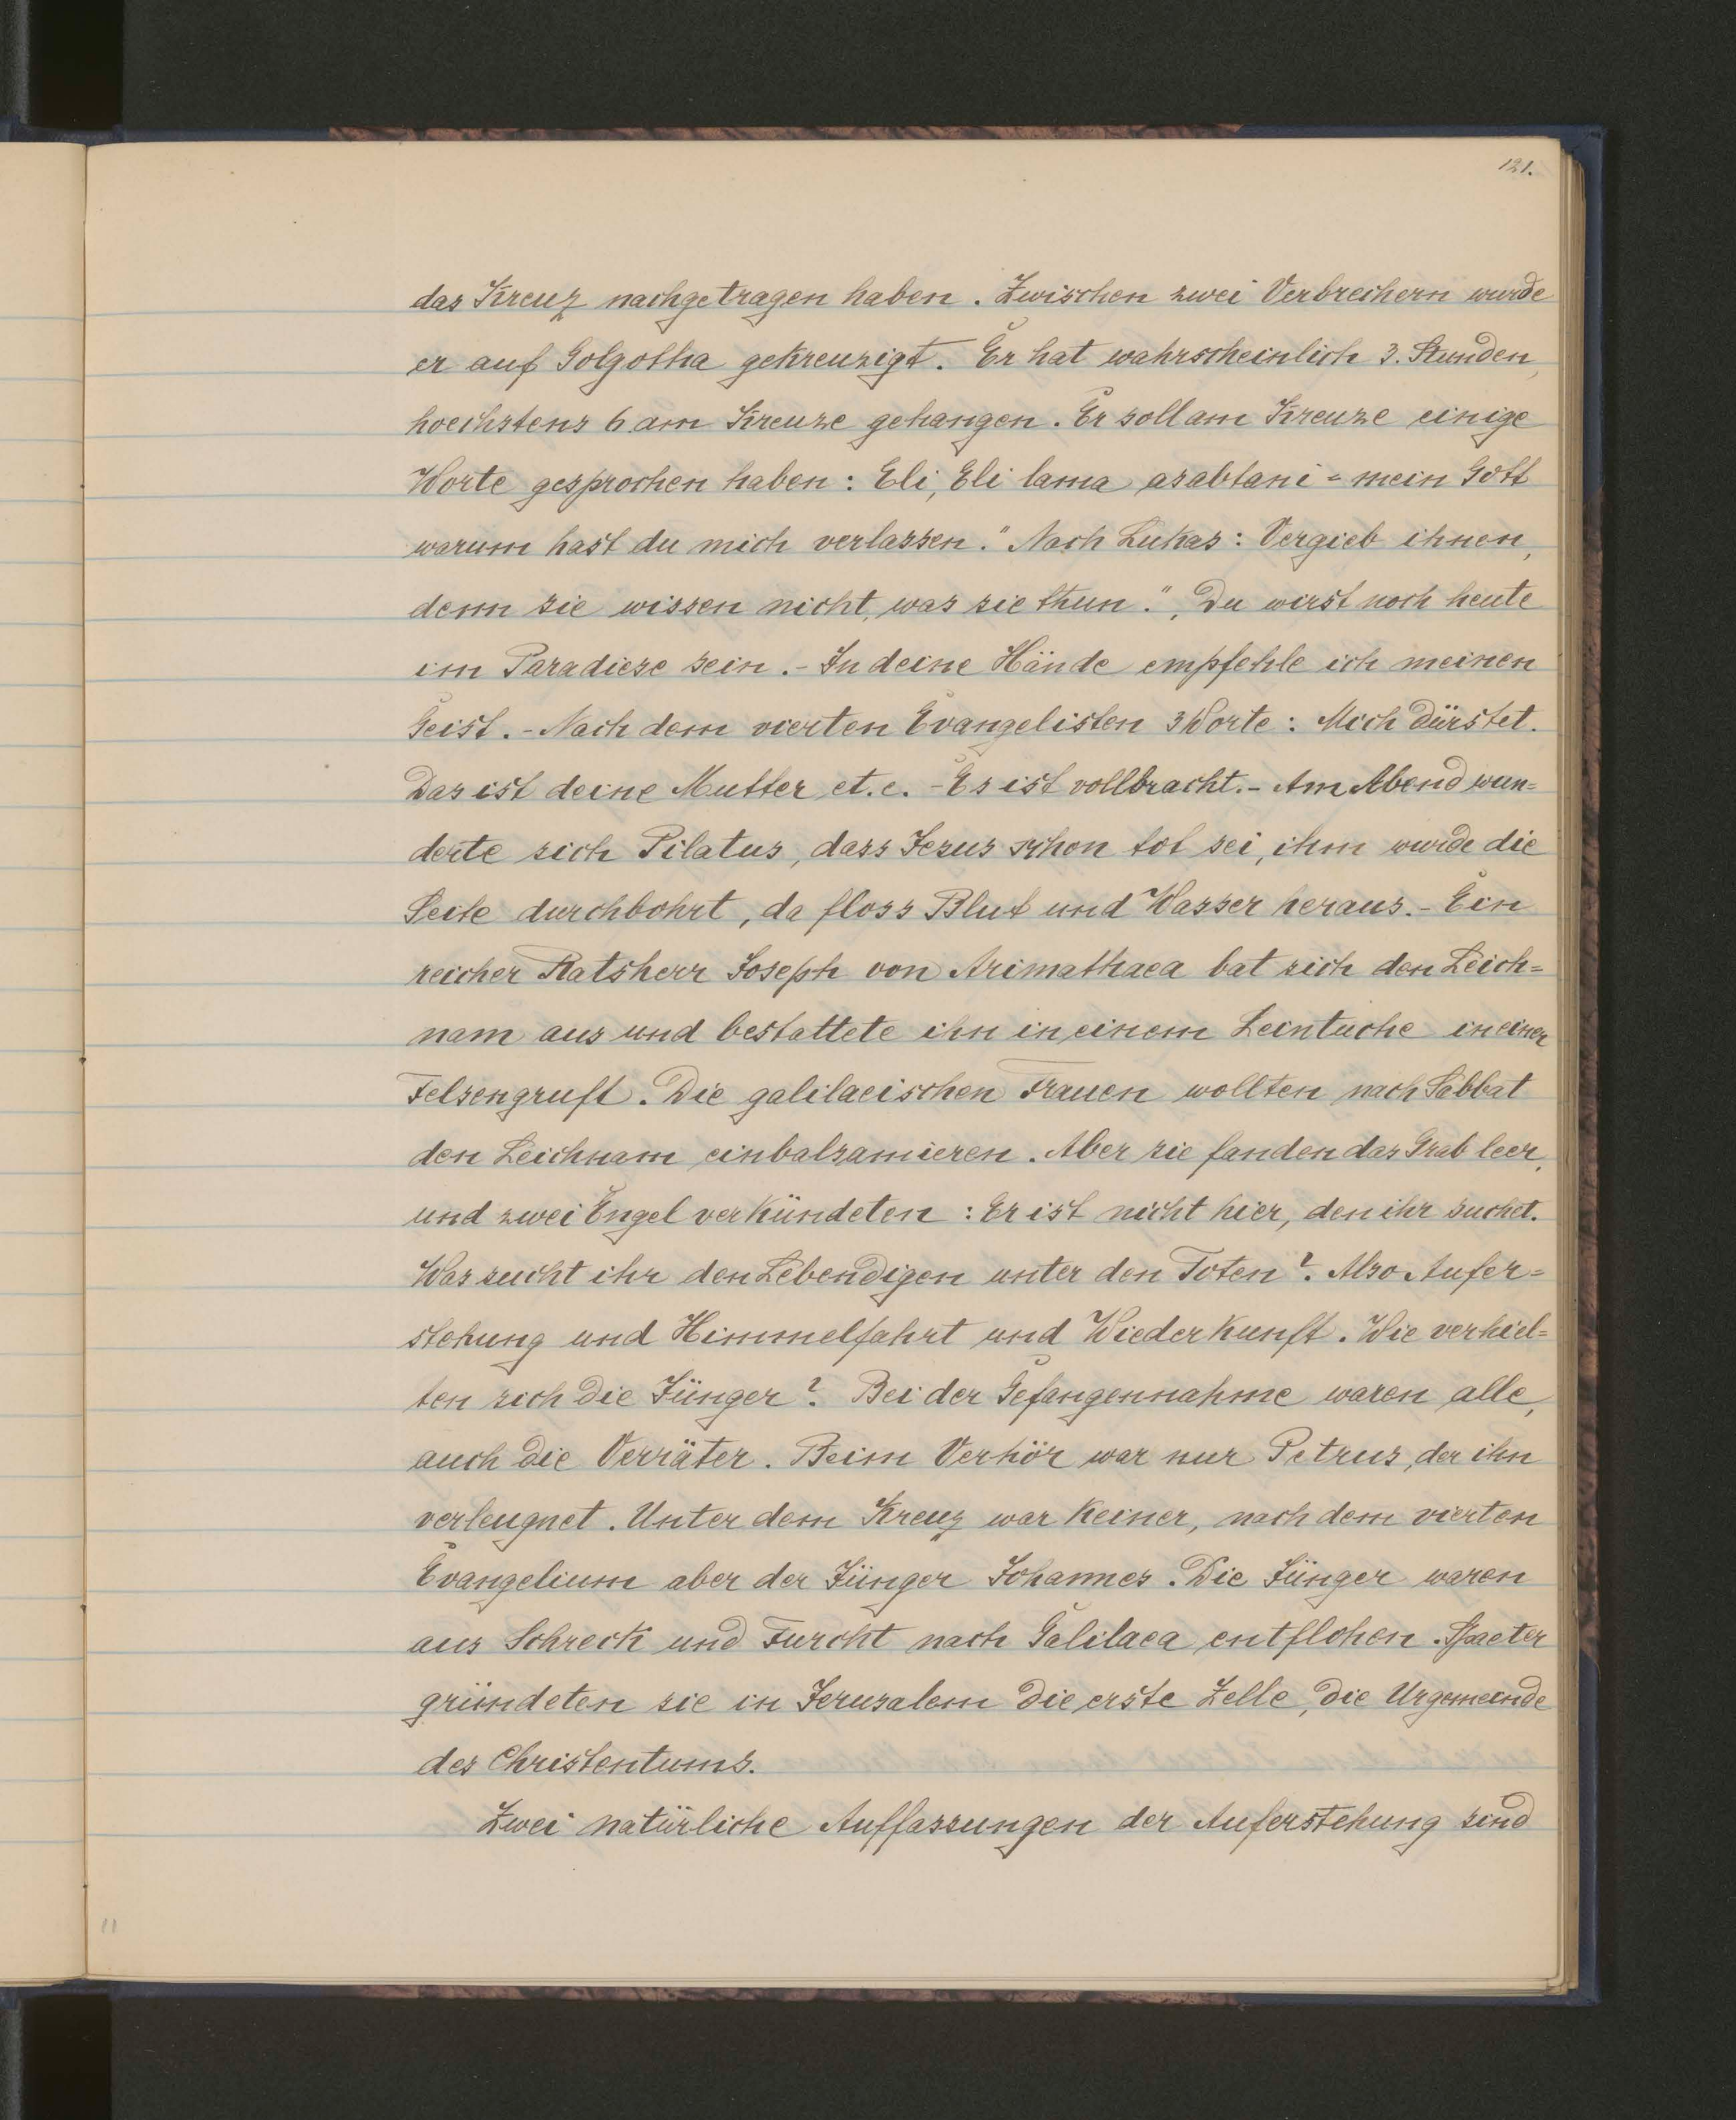 121.
das Kreuz nachgetragen haben. Zwischen zwei Verbrechern wurde
er auf Golgotha gekreuzigt. Er hat wahrscheinlich 3. Stunden,
hoechstens 6 am Kreuze gehangen. Er soll am Kreuze einige
Worte gesprochen haben: Eli, Eli lama asabtani = mein Gott
warum hast du mich verlassen." Nach Lukas: Vergieb ihnen,
denn sie wissen nicht, was sie thun.", Du wirst noch heute
im Paradiese sein. - In deine Hände empfehle ich meinen
Geist. - Nach dem vierten Evangelisten 3 Worte: Mich dürstet.
Das ist deine Mutter et.c. - Es ist vollbracht. - Am Abend wun=
derte sich Pilatus, dass Jesus schon tot sei, ihm wurde die
Seite durchbohrt, da floss Blut und Wasser heraus. - Ein
reicher Ratsherr Joseph von Arimathaea bat sich den Leich=
nam aus und bestattete ihn in einem Leintuche in einer
Felsengruft. Die galilaeischen Frauen wollten nach Sabbat
den Leichnam einbalsamieren. Aber sie fanden das Grab leer,
und zwei Engel verkündeten: Er ist nicht hier, den ihr suchet.
Was sucht ihr den Lebendigen unter den Toten?. Also Aufer=
stehung und Himmelfahrt und Wiederkunft. Wie verhiel=
ten sich die Jünger? Bei der Gefangennahme waren alle,
auch die Verräter. Beim Verhör war nur Petrus, der ihn
verleugnet. Unter dem Kreuz war keiner, nach dem vierten
Evangelium aber der Jünger Johannes. Die Jünger waren
aus Schreck und Furcht nach Galilaea entflohen. Spaeter
gründeten sie in Jerusalem die erste Zelle, die Urgemeinde
des Christentums.
Zwei natürliche Auffassungen der Auferstehung sind